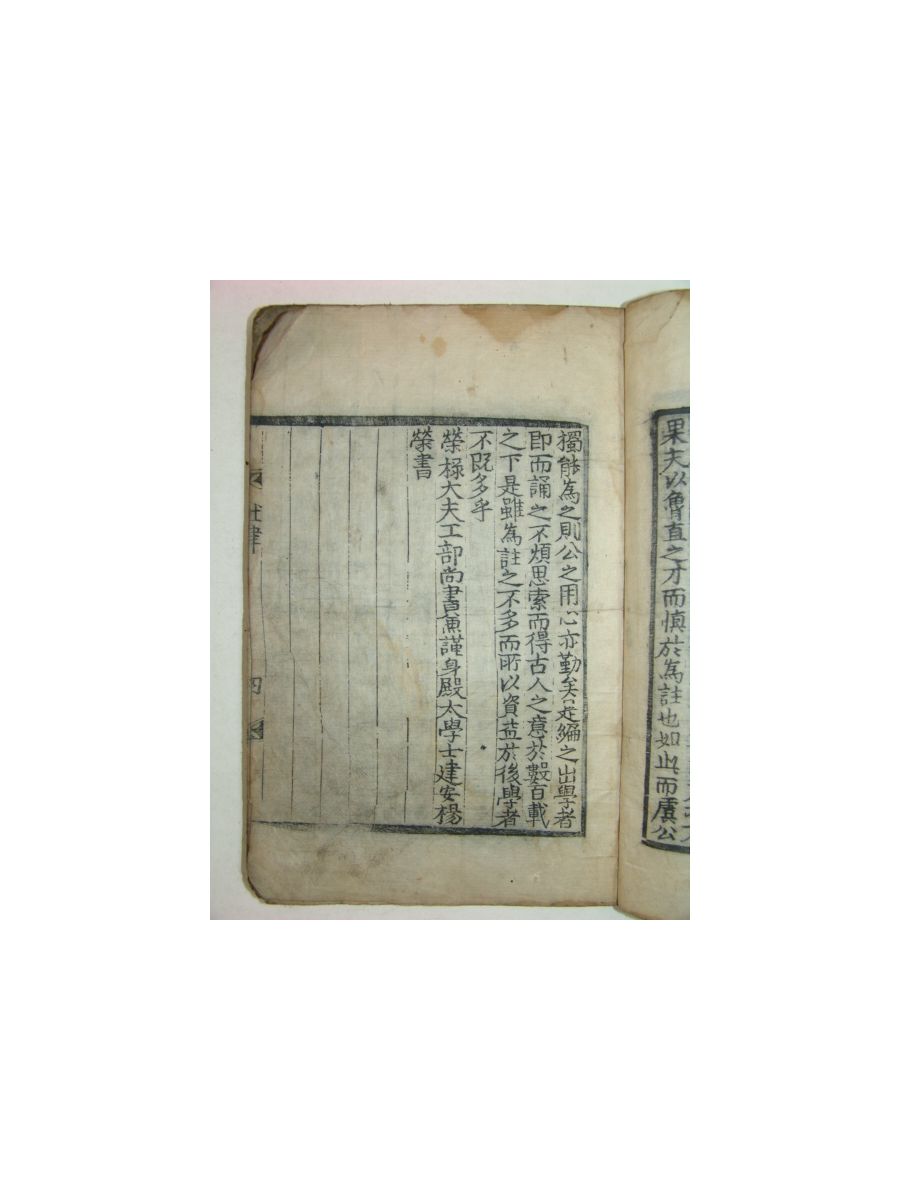 果夫以魯直之才而慎於為註也如此而虞公
獨能為之則公之用心亦勤矣是編之出學者
即而誦之不煩思索而得古人之意於數百載
之下是雖為註之不多而所以資益於後學者
不既多乎
榮祿大夫工部尚書兼謹身殿太學士建安楊
榮書
杜律
四